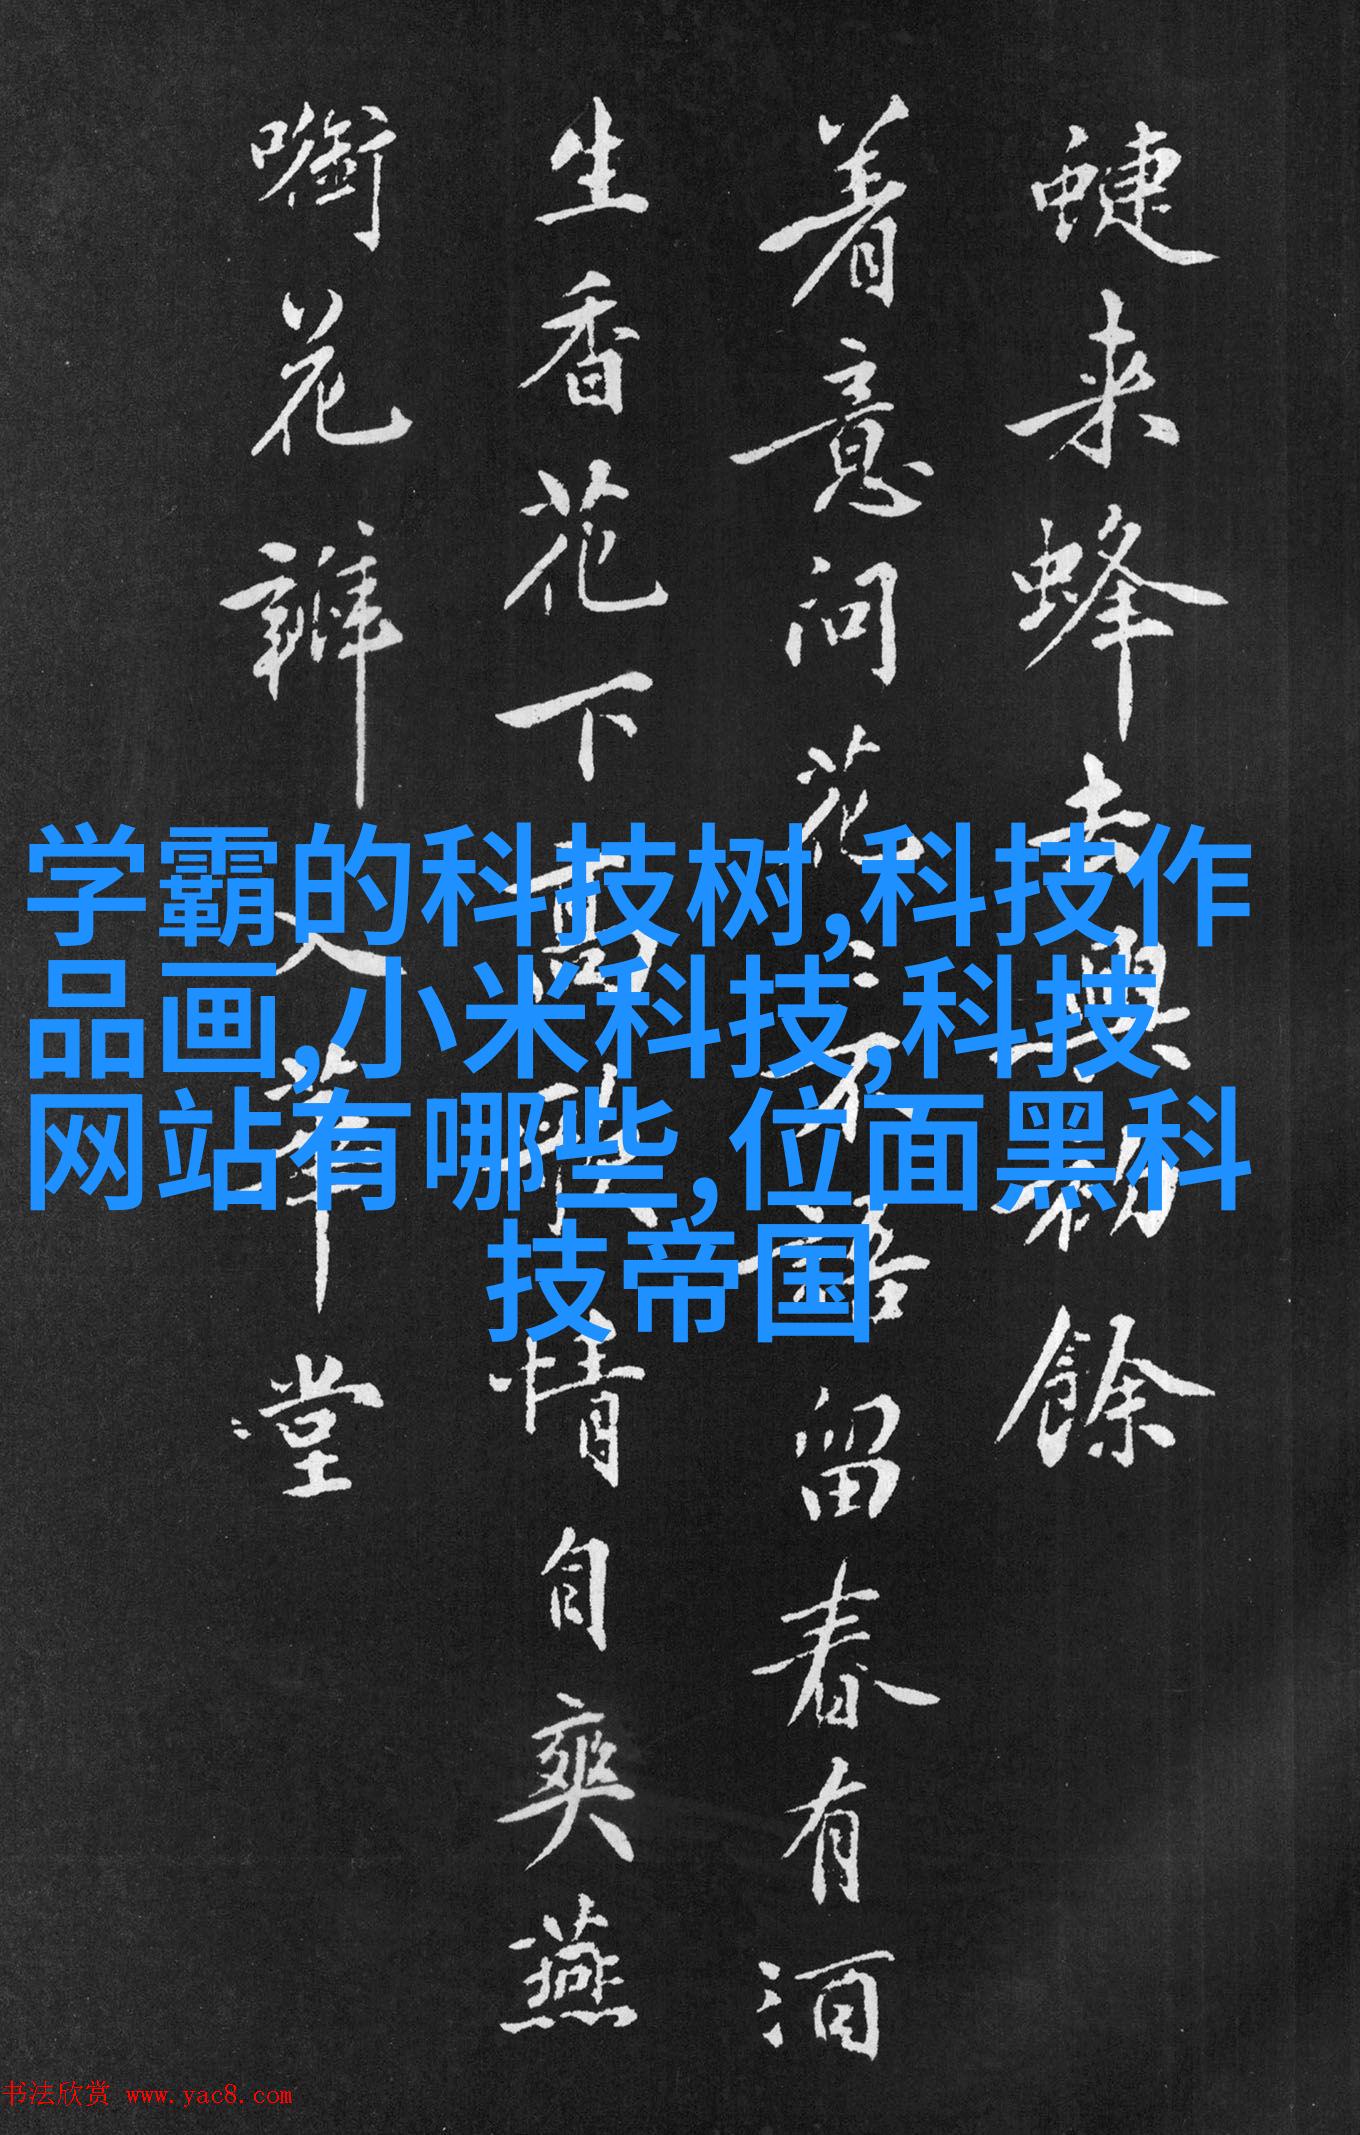 蜨来蜂去興初餘
着意问花〻不語留春有酒
生香花下高歌情自爽燕
㘅花瓣入華堂
学霸的科技树,科技作
品画,小米科技,科技
网站有哪些,位面黑科
技帝国
书法欣赏 www.yac8.com